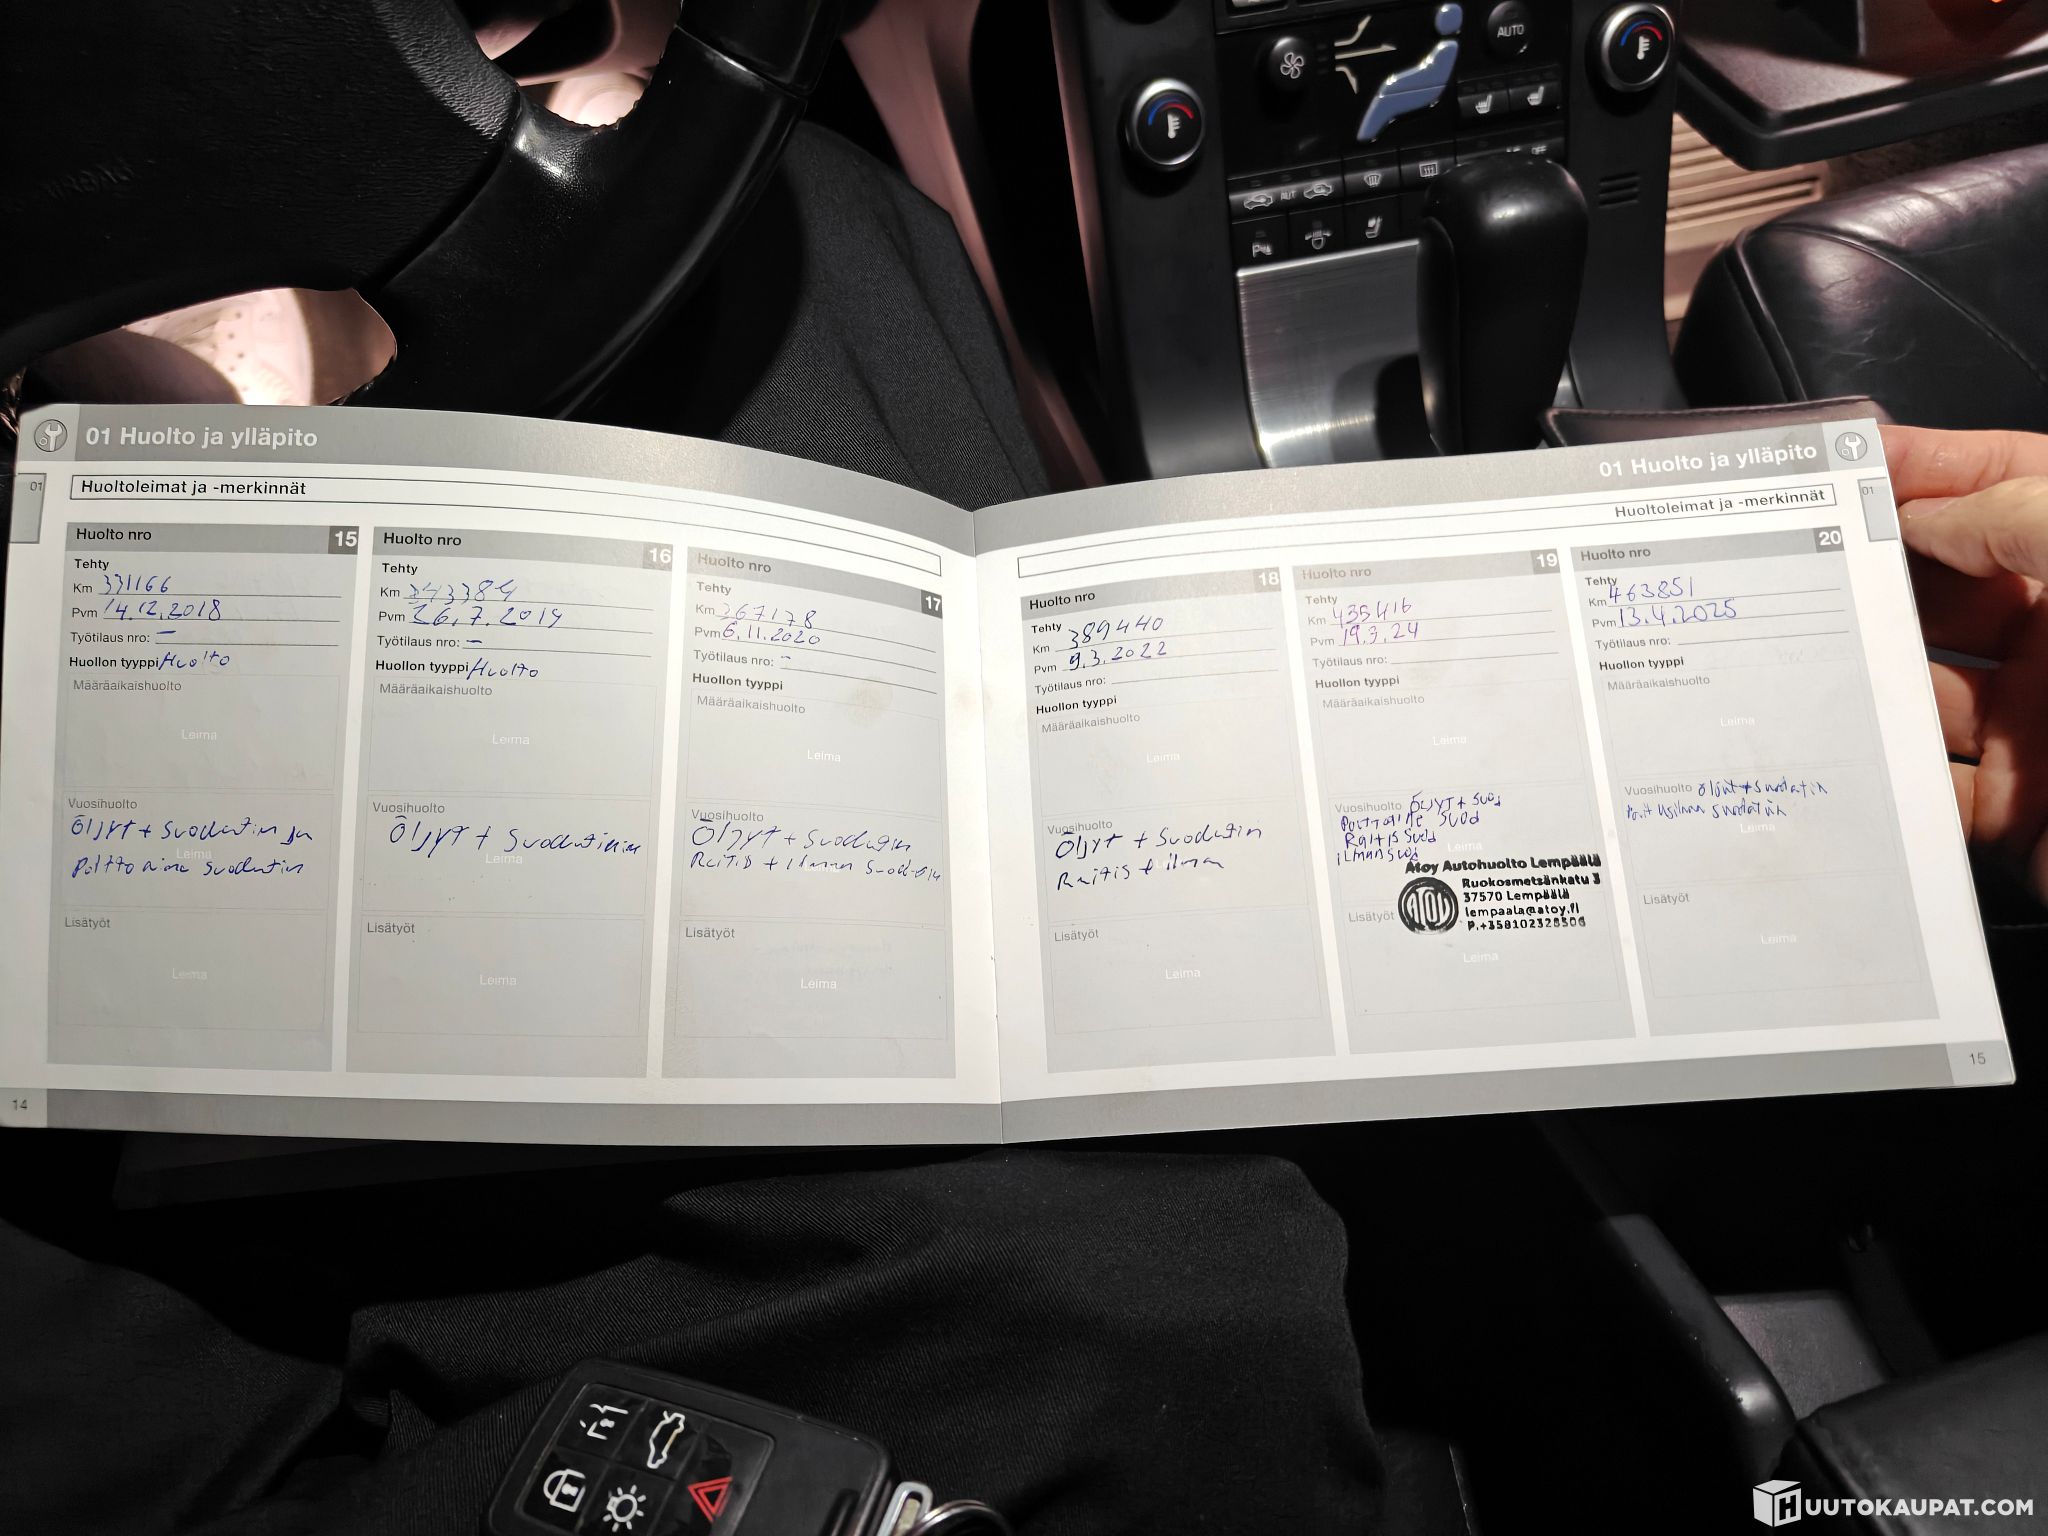 AUTO
AUT
OFF
01 Huolto ja ylläpito
01
Huoltoleimat ja -merkinnät
Huolto nro 15
Tehty
Km 331166
Pvm 14.12.2018
Työtilaus nro: –
Huollon tyyppi Huolto
Määräaikaishuolto
Leima
Vuosihuolto
Öljyt + suodatin ja
Leima
polttoaine suodatin
Lisätyöt
Leima
Huolto nro 16
Tehty
Km 343384
Pvm 26.7.2019
Työtilaus nro: –
Huollon tyyppi Huolto
Määräaikaishuolto
Leima
Vuosihuolto
Öljyt + suodatin
Leima
Lisätyöt
Leima
Huolto nro 17
Tehty
Km 367178
Pvm 6.11.2020
Työtilaus nro: –
Huollon tyyppi
Määräaikaishuolto
Leima
Vuosihuolto
Öljyt + suodatin
Raitis + ilman suodatin
Leima
Lisätyöt
Leima
14
01 Huolto ja ylläpito
01
Huoltoleimat ja -merkinnät
Huolto nro 18
Tehty
Km 389440
Pvm 9.3.2022
Työtilaus nro:
Huollon tyyppi
Määräaikaishuolto
Leima
Vuosihuolto
Öljyt + suodatin
Raitis + ilman
Lisätyöt
Leima
Huolto nro 19
Tehty
Km 435416
Pvm 19.3.24
Työtilaus nro:
Huollon tyyppi
Määräaikaishuolto
Leima
Vuosihuolto Öljyt + suod
Polttoaine suod
Raitis suod
Leima
ilman suod
Atoy Autohuolto Lempäälä
Ruokosmetsänkatu 3
37570 Lempäälä
lempaala@atoy.fi
P.+358102328506
ATOY
Lisätyöt
Leima
Huolto nro 20
Tehty
Km 463851
Pvm 13.4.2025
Työtilaus nro:
Huollon tyyppi
Määräaikaishuolto
Leima
Vuosihuolto öljyt + suodatin
suodatin
Leima
Lisätyöt
Leima
15
HUUTOKAUPAT.COM